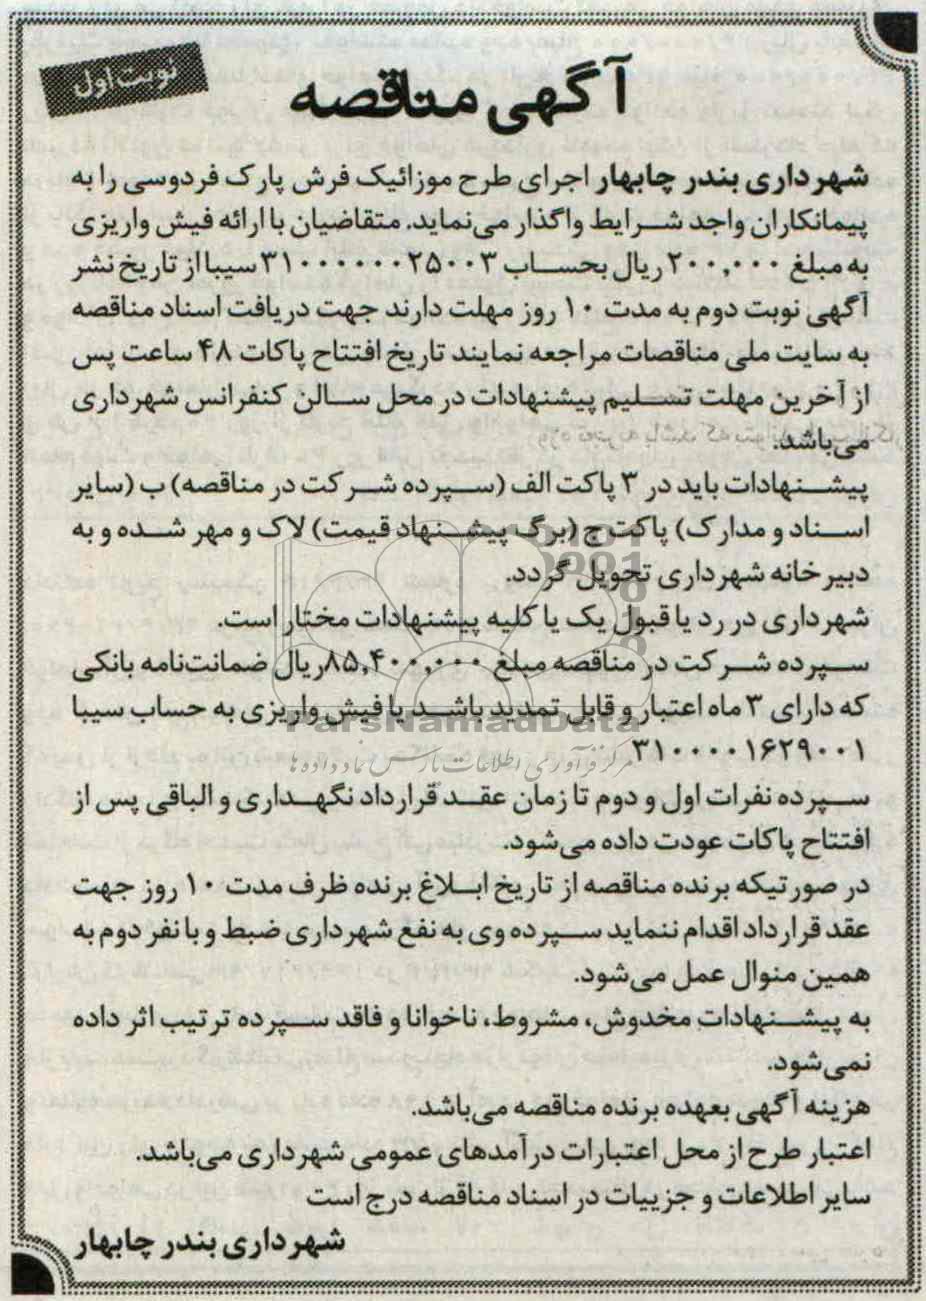 نوبت اول
آگهی مناقصه
شهرداری بندر چابهار اجرای طرح موزائیک فرش پارک فردوسی را به
پیمانکاران واجد شرایط واگذار می‌نماید. متقاضیان با ارائه فیش واریزی
به مبلغ ۲۰۰,۰۰۰ ریال بحساب ۳۱۰۰۰۰۰۰۲۵۰۰۳ سیبا از تاریخ نشر
آگهی نوبت دوم به مدت ۱۰ روز مهلت دارند جهت دریافت اسناد مناقصه
به سایت ملی مناقصات مراجعه نمایند تاریخ افتتاح پاکات ۴۸ ساعت پس
از آخرین مهلت تسلیم پیشنهادات در محل سالن کنفرانس شهرداری
می‌باشد.
پیشنهادات باید در ۳ پاکت الف (سپرده شرکت در مناقصه) ب (سایر
اسناد و مدارک) پاکت ج (برگ پیشنهاد قیمت) لاک و مهر شده و به
دبیرخانه شهرداری تحویل گردد.
شهرداری در رد یا قبول یک یا کلیه پیشنهادات مختار است.
سپرده شرکت در مناقصه مبلغ ۸۵,۴۰۰,۰۰۰ریال ضمانت‌نامه بانکی
که دارای ۳ ماه اعتبار و قابل تمدید باشد یا فیش واریزی به حساب سیبا
ParsNamadData
۳۱۰۰۰۰۱۶۲۹۰۰۱
مرکز فرآوری اطلاعات پارس نماد داده ها
سپرده نفرات اول و دوم تا زمان عقد قرارداد نگهداری و الباقی پس از
افتتاح پاکات عودت داده می‌شود.
در صورتیکه برنده مناقصه از تاریخ ابلاغ برنده ظرف مدت ۱۰ روز جهت
عقد قرارداد اقدام ننماید سپرده وی به نفع شهرداری ضبط و با نفر دوم به
همین منوال عمل می‌شود.
به پیشنهادات مخدوش، مشروط، ناخوانا و فاقد سپرده ترتیب اثر داده
نمی‌شود.
هزینه آگهی بعهده برنده مناقصه می‌باشد.
اعتبار طرح از محل اعتبارات درآمدهای عمومی شهرداری می‌باشد.
سایر اطلاعات و جزییات در اسناد مناقصه درج است
شهرداری بندر چابهار